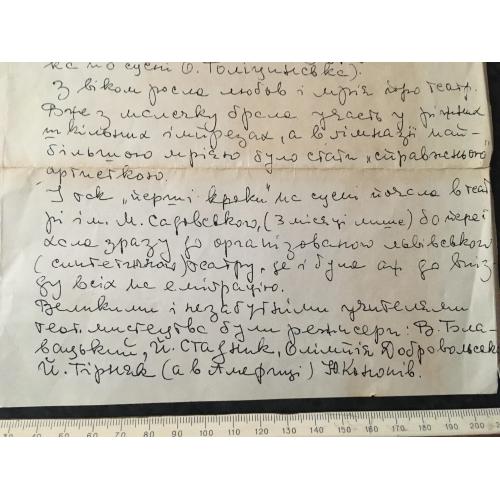 ка по сцені О. Голіцинська).
З віком росла любов і мрія про театр.
Вже з малечку брала участь у ріжних
шкільних імпрезах, а в гімназії най-
більшою мрією було стати "справжньою
артисткою.
І так "перші кроки" на сцені почала в теат
рі ім. М. Садовського, (3 місяці лише) бо переї
хала зразу до організованого львівського
(синтетичного) театру, де і була аж до виїз
ду всіх на еміграцію.
Великими і незабутніми учителями
теат. мистецтва були режисери: В. Бла-
вацький, Й. Стадник, Олімпія Добровольська
Й. Гірняк (а в Америці) Ю. Кононів.
30 40 50 60 70 80 90 100 110 120 130 140 150 160 170 180 190 200